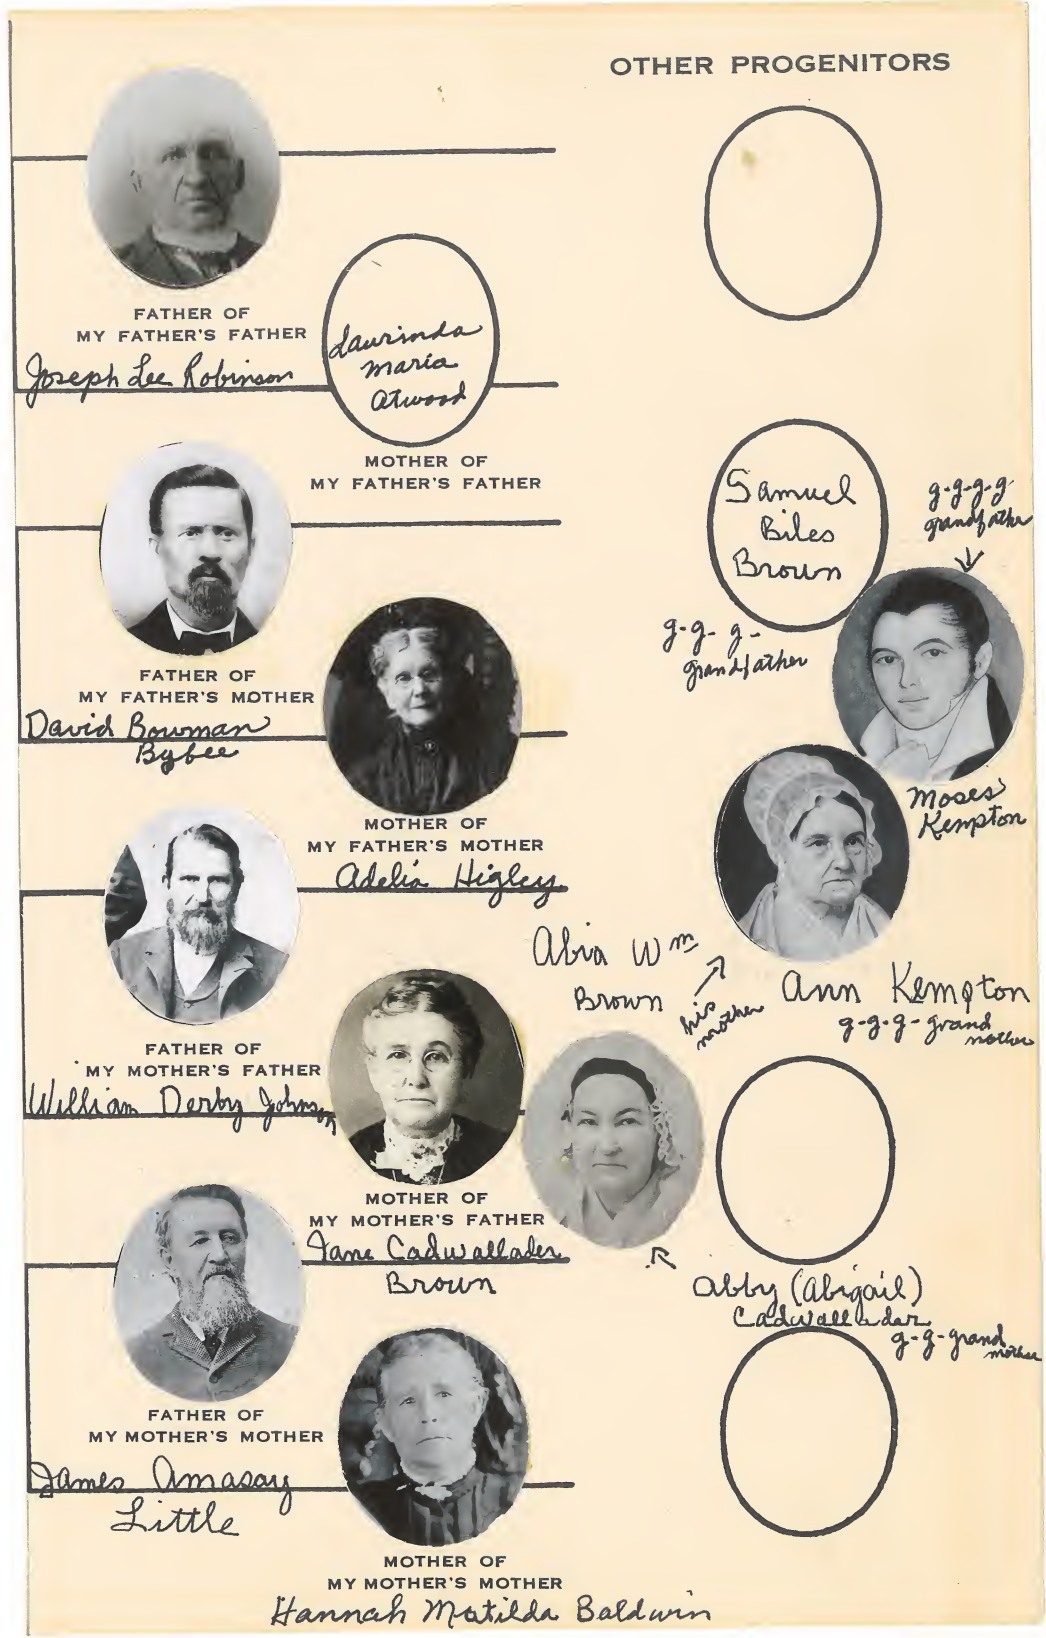 OTHER PROGENITORS
FATHER OF
MY FATHER'S FATHER
Joseph Lee Robinson
Laurinda
Maria
Atwood
MOTHER OF
MY FATHER'S FATHER
FATHER OF
MY FATHER'S MOTHER
David Bowman
Bybee
MOTHER OF
MY FATHER'S MOTHER
Adelia Higley
FATHER OF
MY MOTHER'S FATHER
William Derby Johnson
MOTHER OF
MY MOTHER'S FATHER
Jane Cadwallader
Brown
FATHER OF
MY MOTHER'S MOTHER
James Amasay
Little
MOTHER OF
MY MOTHER'S MOTHER
Hannah Matilda Baldwin
Samuel
Biles
Brown
g-g-g-
grandfather
g-g-g-g
grandfather
Moses
Kempton
Abia Wm
Brown
his
mother
Ann Kempton
g-g-g-grand
mother
Abby (Abigail)
Cadwallader
g-g-grand
mother